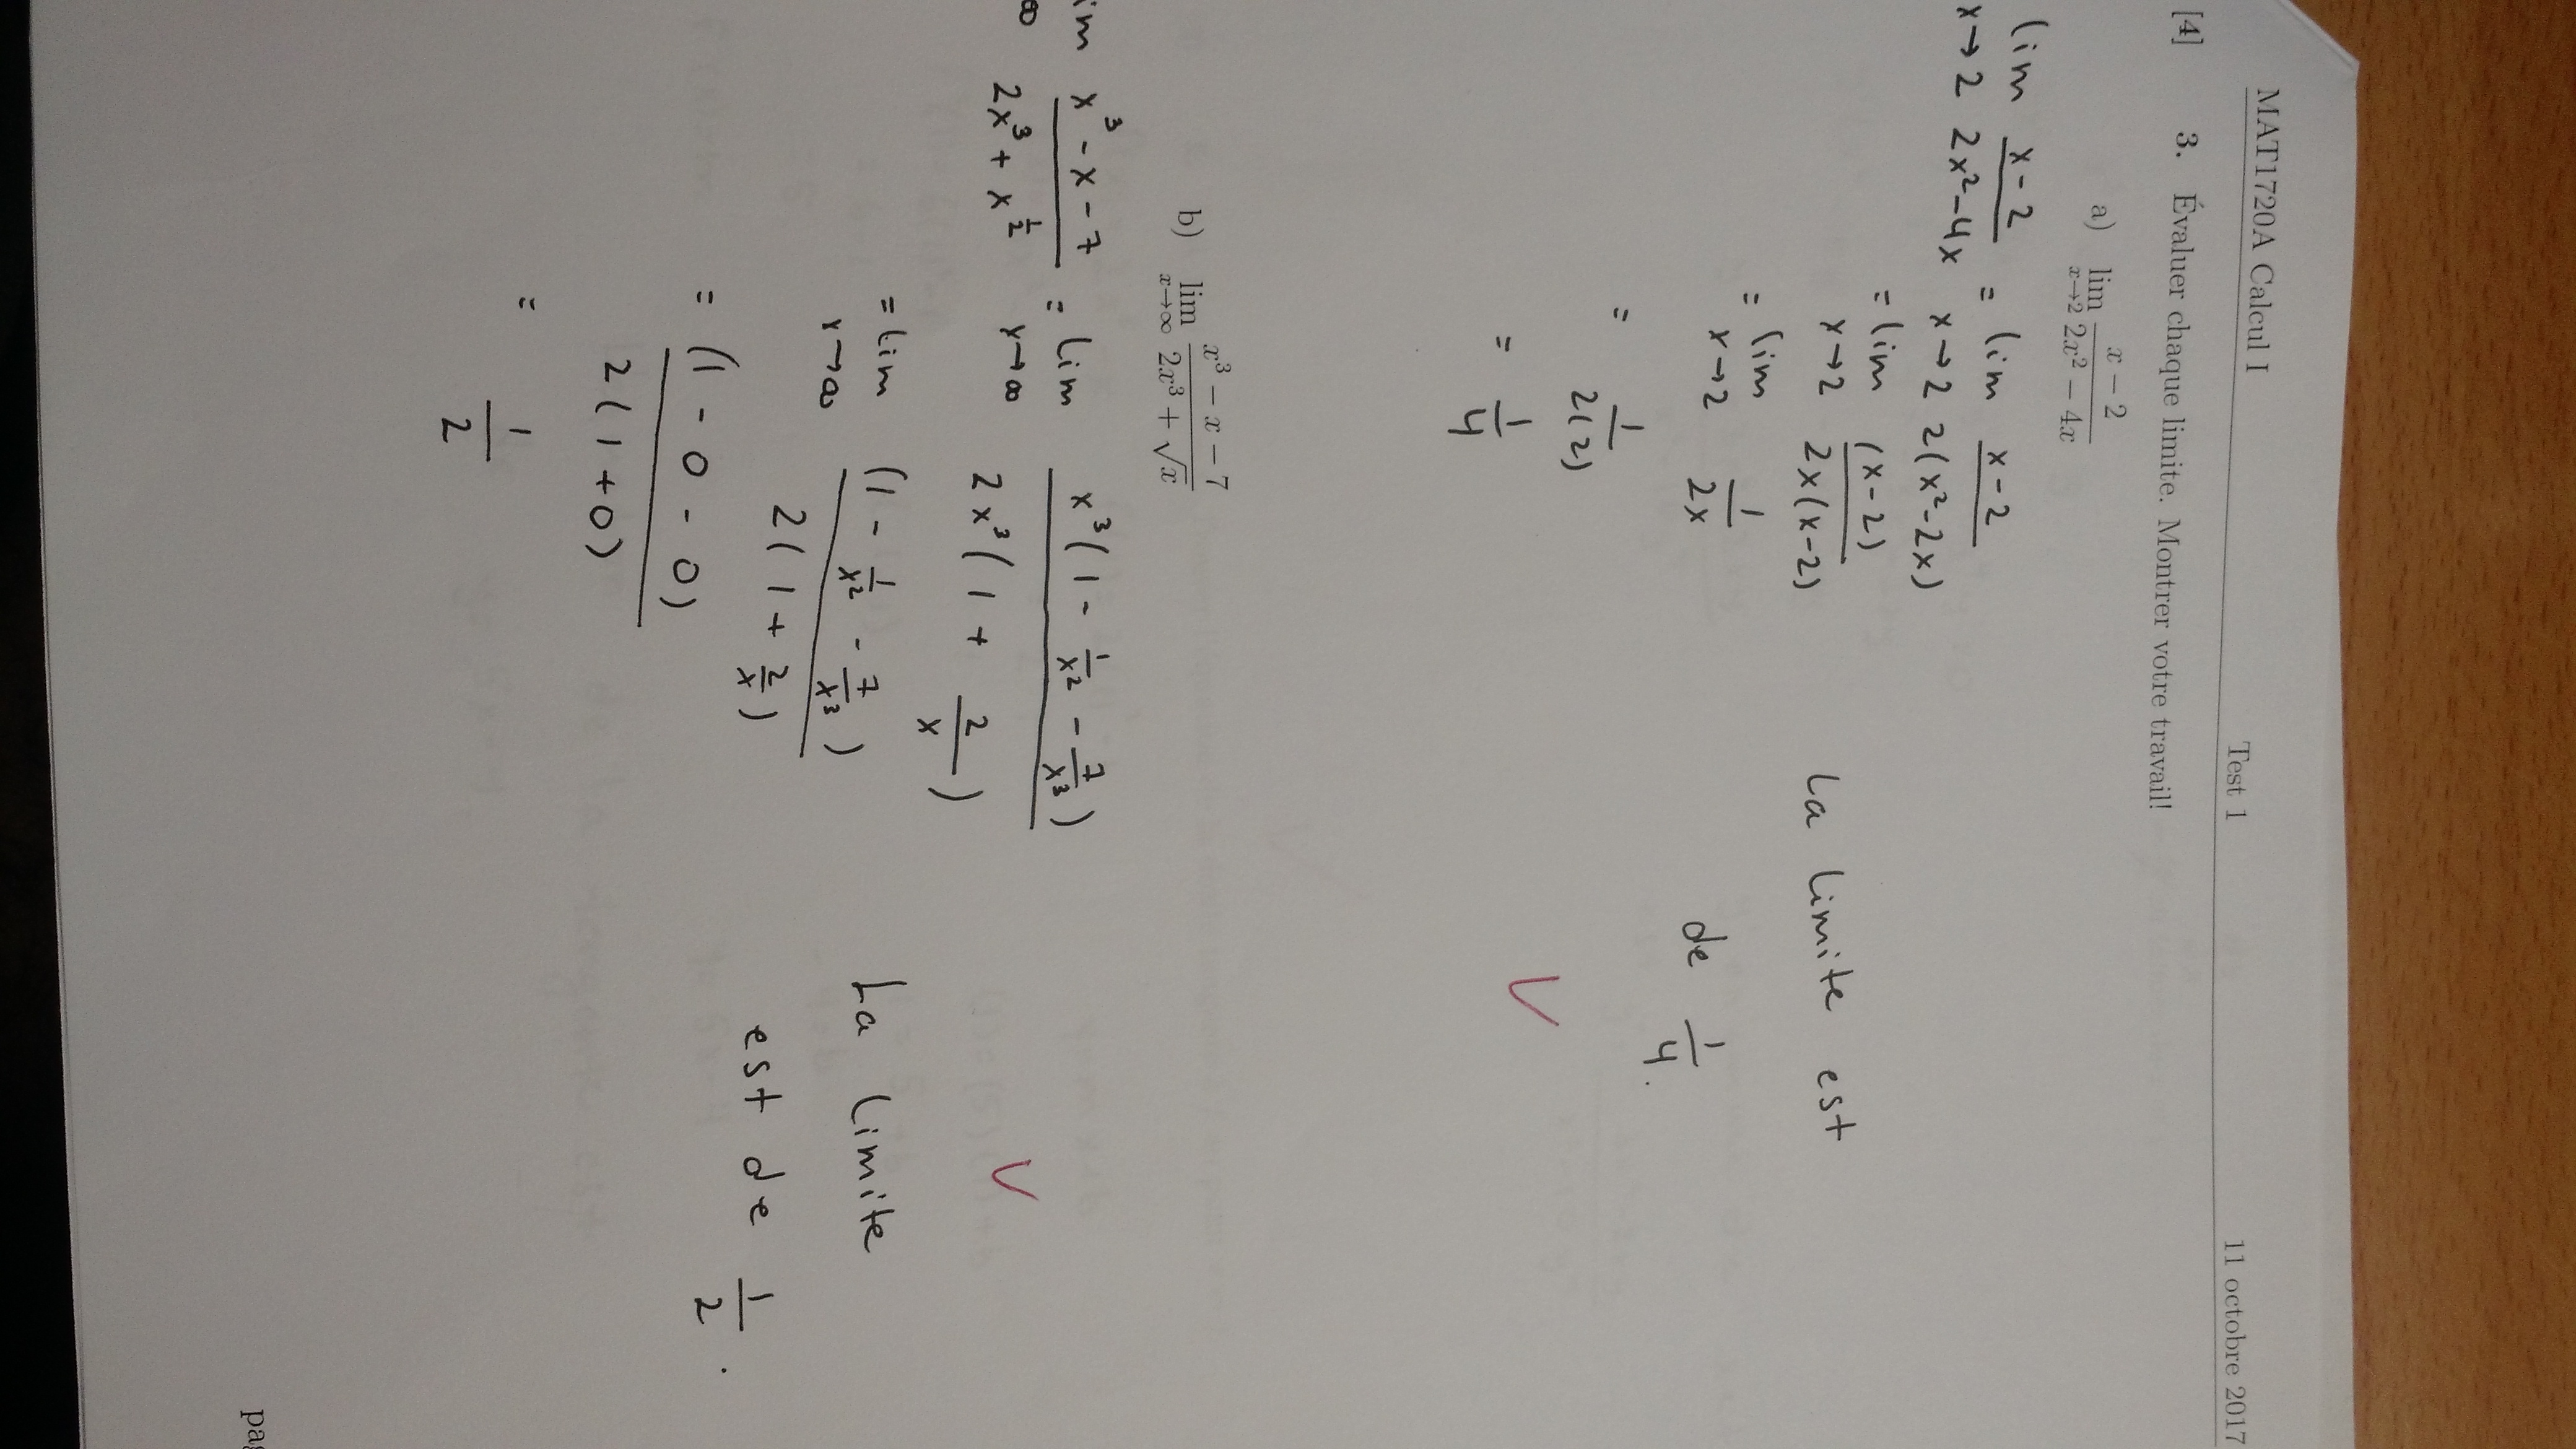 MAT1720A Calcul I Test 1 11 octobre 2017
[4] 3. Évaluer chaque limite. Montrer votre travail!
a) lim x→2 (x − 2)/(2x² − 4x)
lim x→2 (x-2)/(2x²-4x) = lim x→2 (x-2)/(2(x²-2x))
= lim x→2 (x-2)/(2x(x-2))
La limite est
= lim x→2 1/(2x)
de 1/4.
= 1/(2(2))
= 1/4
b) lim x→∞ (x³ − x − 7)/(2x³ + √x)
im ∞ (x³-x-7)/(2x³+x^(1/2)) = lim x→∞ (x³(1-1/x²-7/x³))/(2x³(1+2/x))
= lim x→∞ (1-1/x²-7/x³)/(2(1+2/x))
La limite
= (1-0-0)/(2(1+0))
est de 1/2.
= 1/2